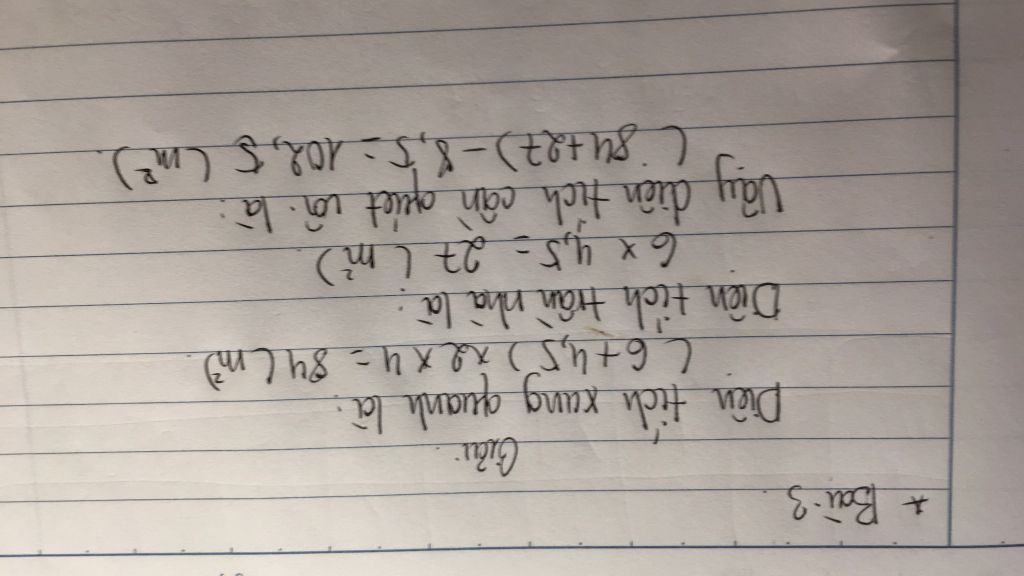 * Bài 3
Giải:
Diện tích xung quanh là:
( 6 + 4,5 ) x 2 x 4 = 84 ( m²)
Diện tích trần nhà là :
6 x 4,5 = 27 ( m²)
Vậy diện tích cần quét vôi là :
( 84 + 27 ) - 8,5 = 102,5 ( m²).